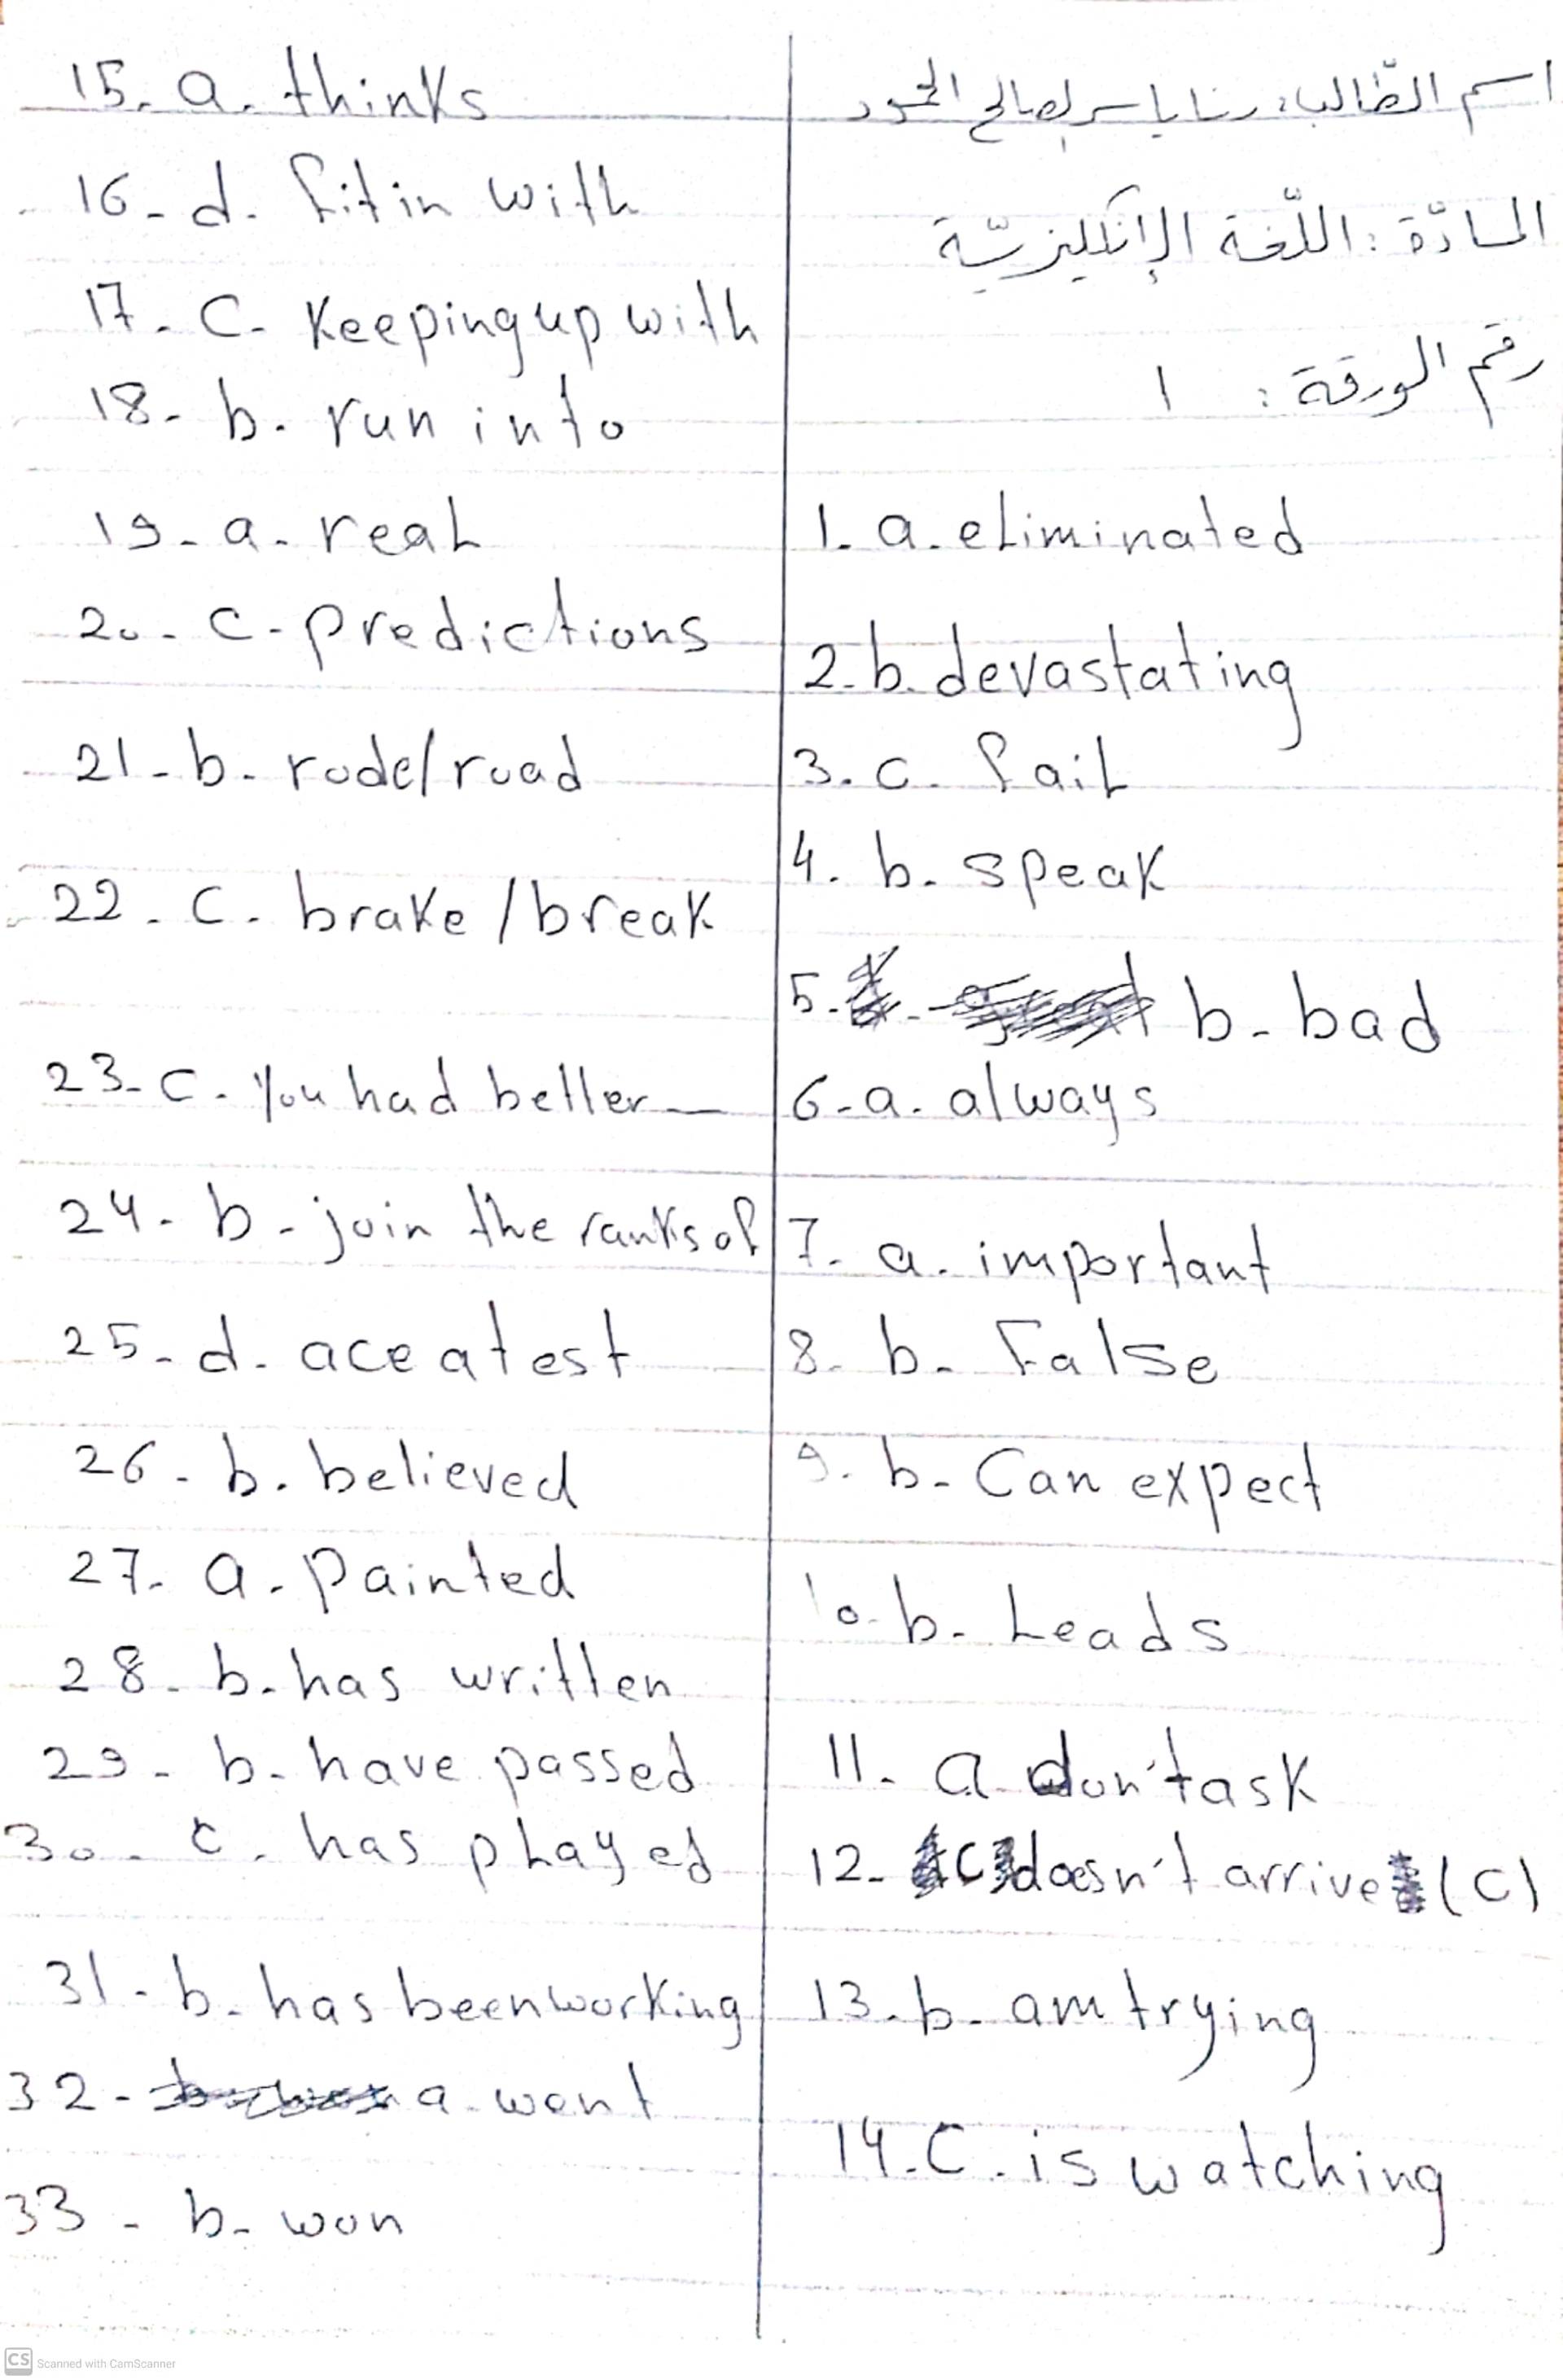 اسم الطّالب: رنا ياسر لصالح الحمود
المادّة: اللّغة الإنكليزيّة
رقم الورقة: ١
1. a. eliminated
2. b. devastating
3. c. fail
4. b. speak
5. b. bad
6. a. always
7. a. important
8. b. False
9. b. Can expect
10. b. Leads
11. a don't ask
12. c doesn't arrive (C)
13. b. am trying
14. C. is watching
15. a. thinks
16. d. fit in with
17. C. Keeping up with
18. b. run into
19. a. real
20. C. predictions
21. b. rode/road
22. C. brake / break
23. C. You had better
24. b. join the ranks of
25. d. ace a test
26. b. believed
27. a. painted
28. b. has written
29. b. have passed
30. c. has played
31. b. has been working
32. a. went
33. b. won
CS Scanned with CamScanner